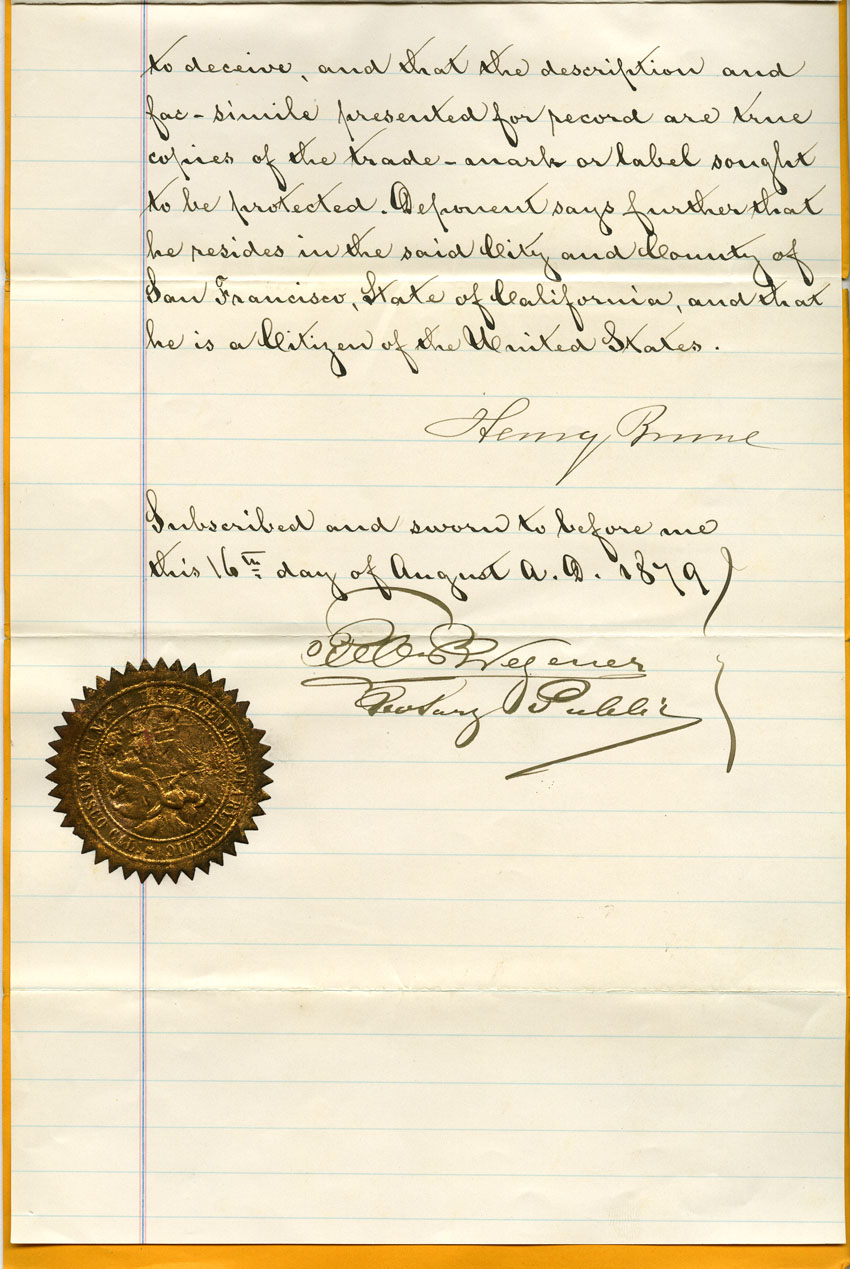 to deceive, and that the description and
fac-simile presented for record are true
copies of the trade-mark or label sought
to be protected. Deponent says further that
he resides in the said City and County of
San Francisco, State of California, and that
he is a Citizen of the United States.
Henry Brune
Subscribed and sworn to before me
this 16th day of August A.D. 1879
Wegener
Notary Public
WEGENER NOTARY PUBLIC
SAN FRANCISCO CAL.